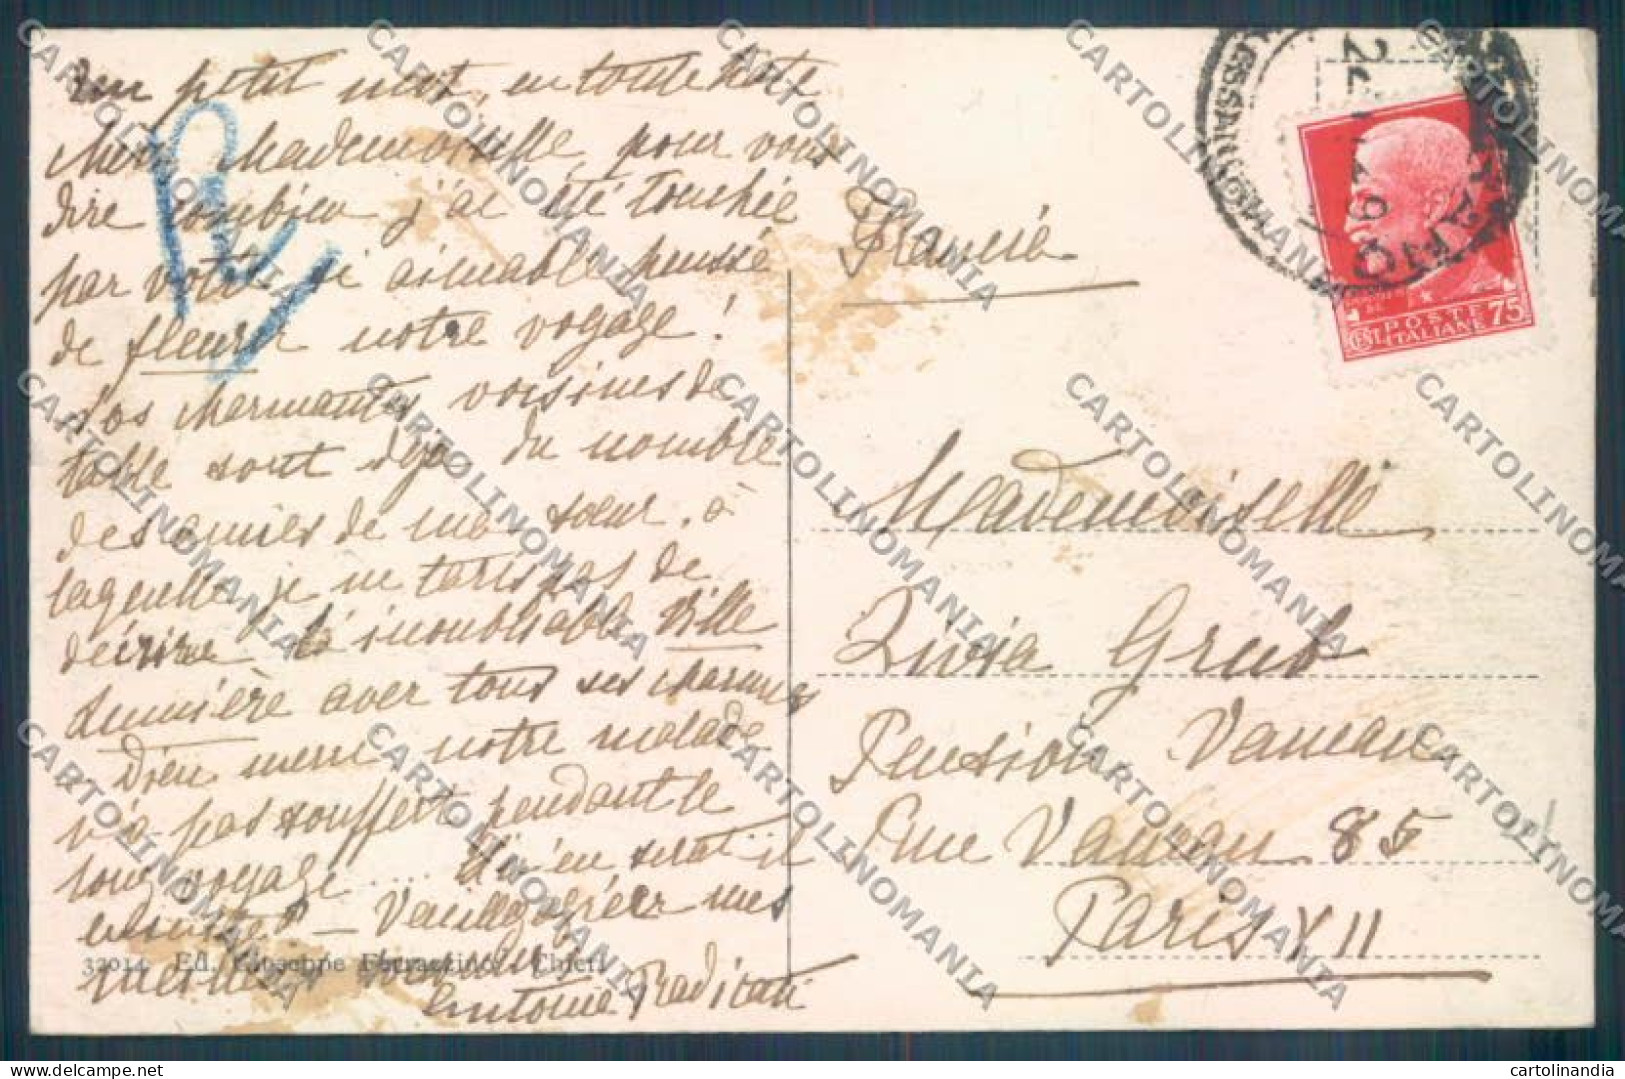 un petit mot, en toute hâte
chère Mademoiselle, pour vous
dire combien j'ai été touchée
par votre si aimable pensée
de fleurir notre voyage!
Vos charmantes voisines de
table sont déjà du nombre
des amies de ma soeur, à
laquelle je ne taris pas de
décrire l'inoubliable Ville
Lumière avec tous ses charmes
Dieu merci notre malade
n'a pas souffert pendant le
long voyage.... Qu'en serat-il
ensuite? — Veuillez agréer mes
meilleurs
Antonia
32014 Ed. Giuseppe Ferrazzino - Chieti
Francia
Mademoiselle
Livia Grub
Pension Vaneau
Rue Vaneau 85
Paris VII
POSTE
ITALIANE
CENT. 75
CARTOLINOMANIA
www.delcampe.net
cartolinandia